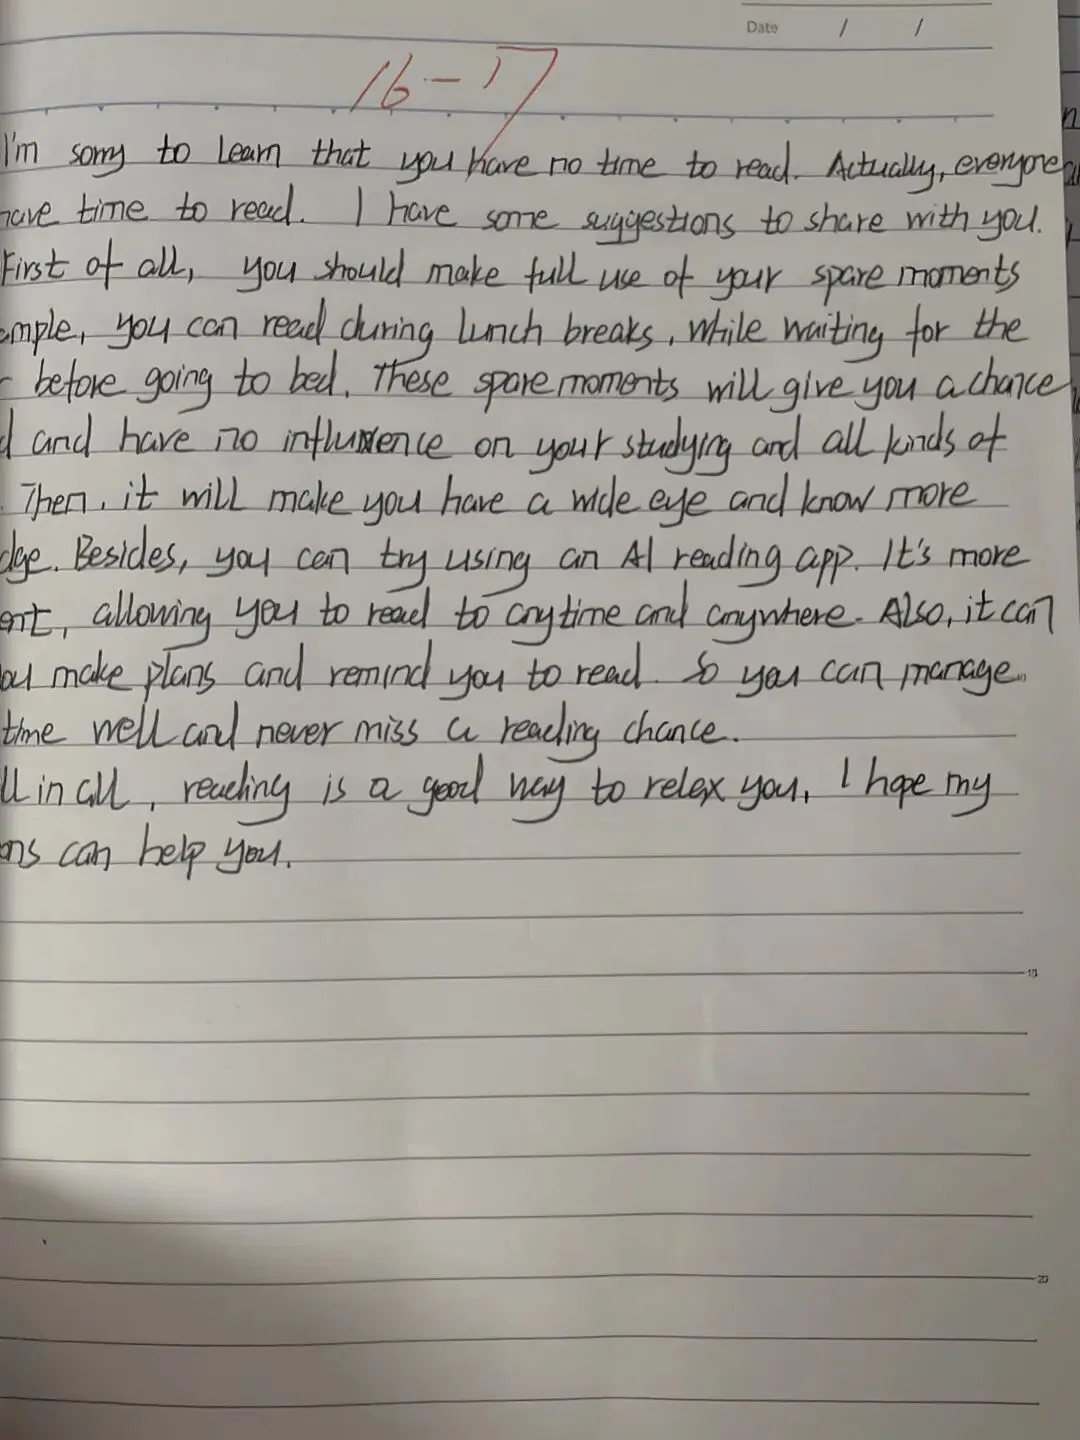 Date / /
16-17
I'm sorry to learn that you have no time to read. Actually, everyone
have time to read. I have some suggestions to share with you.
First of all, you should make full use of your spare moments
ample, you can read during lunch breaks, while waiting for the
before going to bed. These spare moments will give you a chance
d and have no influence on your studying and all kinds of
. Then, it will make you have a wide eye and know more
dge. Besides, you can try using an AI reading app. It's more
ent, allowing you to read to anytime and anywhere. Also, it can
ou make plans and remind you to read. So you can manage
time well and never miss a reading chance.
ll in all, reading is a good way to relex you, I hope my
ons can help you.